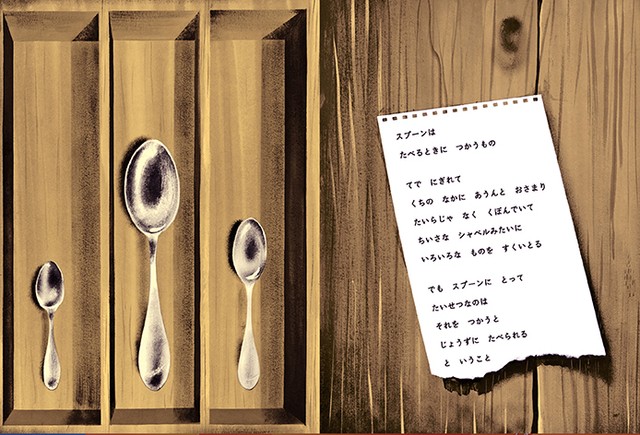 スプーンは
たべるときに　つかうもの
てで　にぎれて
くちの　なかに　あうんと　おさまり
たいらじゃ　なく　くぼんでいて
ちいさな　シャベルみたいに
いろいろな　ものを　すくいとる
でも　スプーンに　とって
たいせつなのは
それを　つかうと
じょうずに　たべられる
と　いうこと